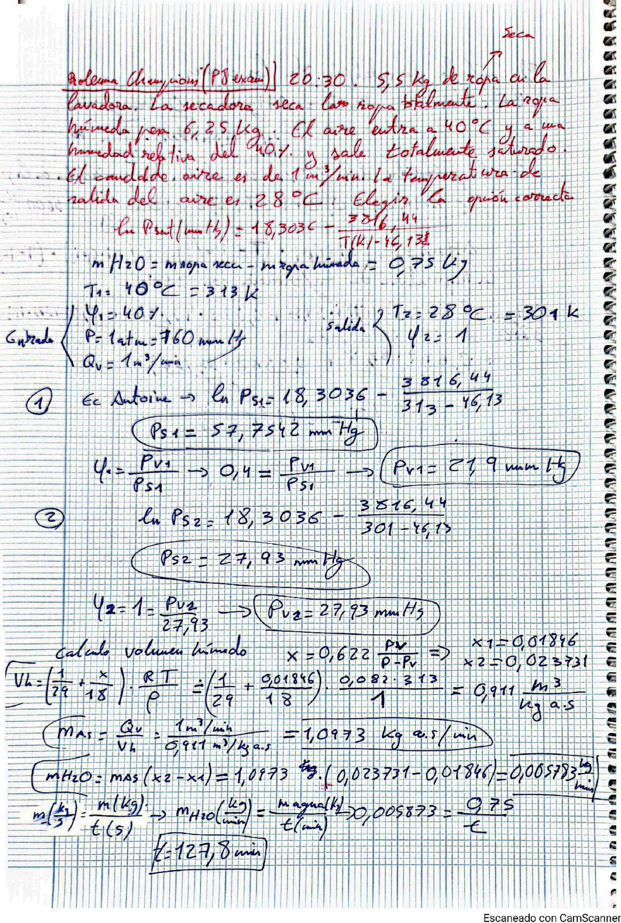 Seca
Problema Champions (PJ exam)) 20:30. 5,5 kg de ropa en la
lavadora. La secadora seca la ropa totalmente. La ropa
húmeda pesa 6,25 kg. El aire entra a 40°C y a una
humedad relativa del 40% y sale totalmente saturado.
El caudal de aire es de 1 m³/min. La temperatura de
salida del aire es 28°C. Elegir la opción correcta
ln Psat(mmHg) = 18,3036 - 3816,44 / T(K)-46,13
mH2O = m ropa seca - m ropa húmeda = 0,75 kg
T1 = 40°C = 313 K
Entrada { φ1 = 40%
P = 1 atm = 760 mmHg
Qv = 1 m³/min
salida { T2 = 28°C = 301 K
φ2 = 1
① Ec Antoine → ln Ps1 = 18,3036 - 3816,44 / 313 - 46,13
Ps1 = 57,7542 mmHg
φ1 = Pv1/Ps1 → 0,4 = Pv1/Ps1 → Pv1 = 21,9 mmHg
② ln Ps2 = 18,3036 - 3816,44 / 301-46,13
Ps2 = 27,93 mmHg
φ2 = 1 = Pv2/27,93 → Pv2 = 27,93 mmHg
Calculo volumen húmedo x = 0,622 Pv/P-Pv => x1 = 0,01846
x2 = 0,023731
Vh = (1/29 + x/18) · RT/P = (1/29 + 0,01846/18) · 0,082·313/1 = 0,911 m³/kg a.s
mAS = Qv/Vh = 1m³/min / 0,911 m³/kg a.s = 1,0973 kg a.s/min
mH2O = mAS (x2-x1) = 1,0973 · (0,023731 - 0,01846) = 0,005783 kg/min
m(kg/s) = m(kg)/t(s) → mH2O(kg/min) = m agua(kg)/t(min) → 0,005873 = 0,75/t
t = 127,8 min
Escaneado con CamScanner